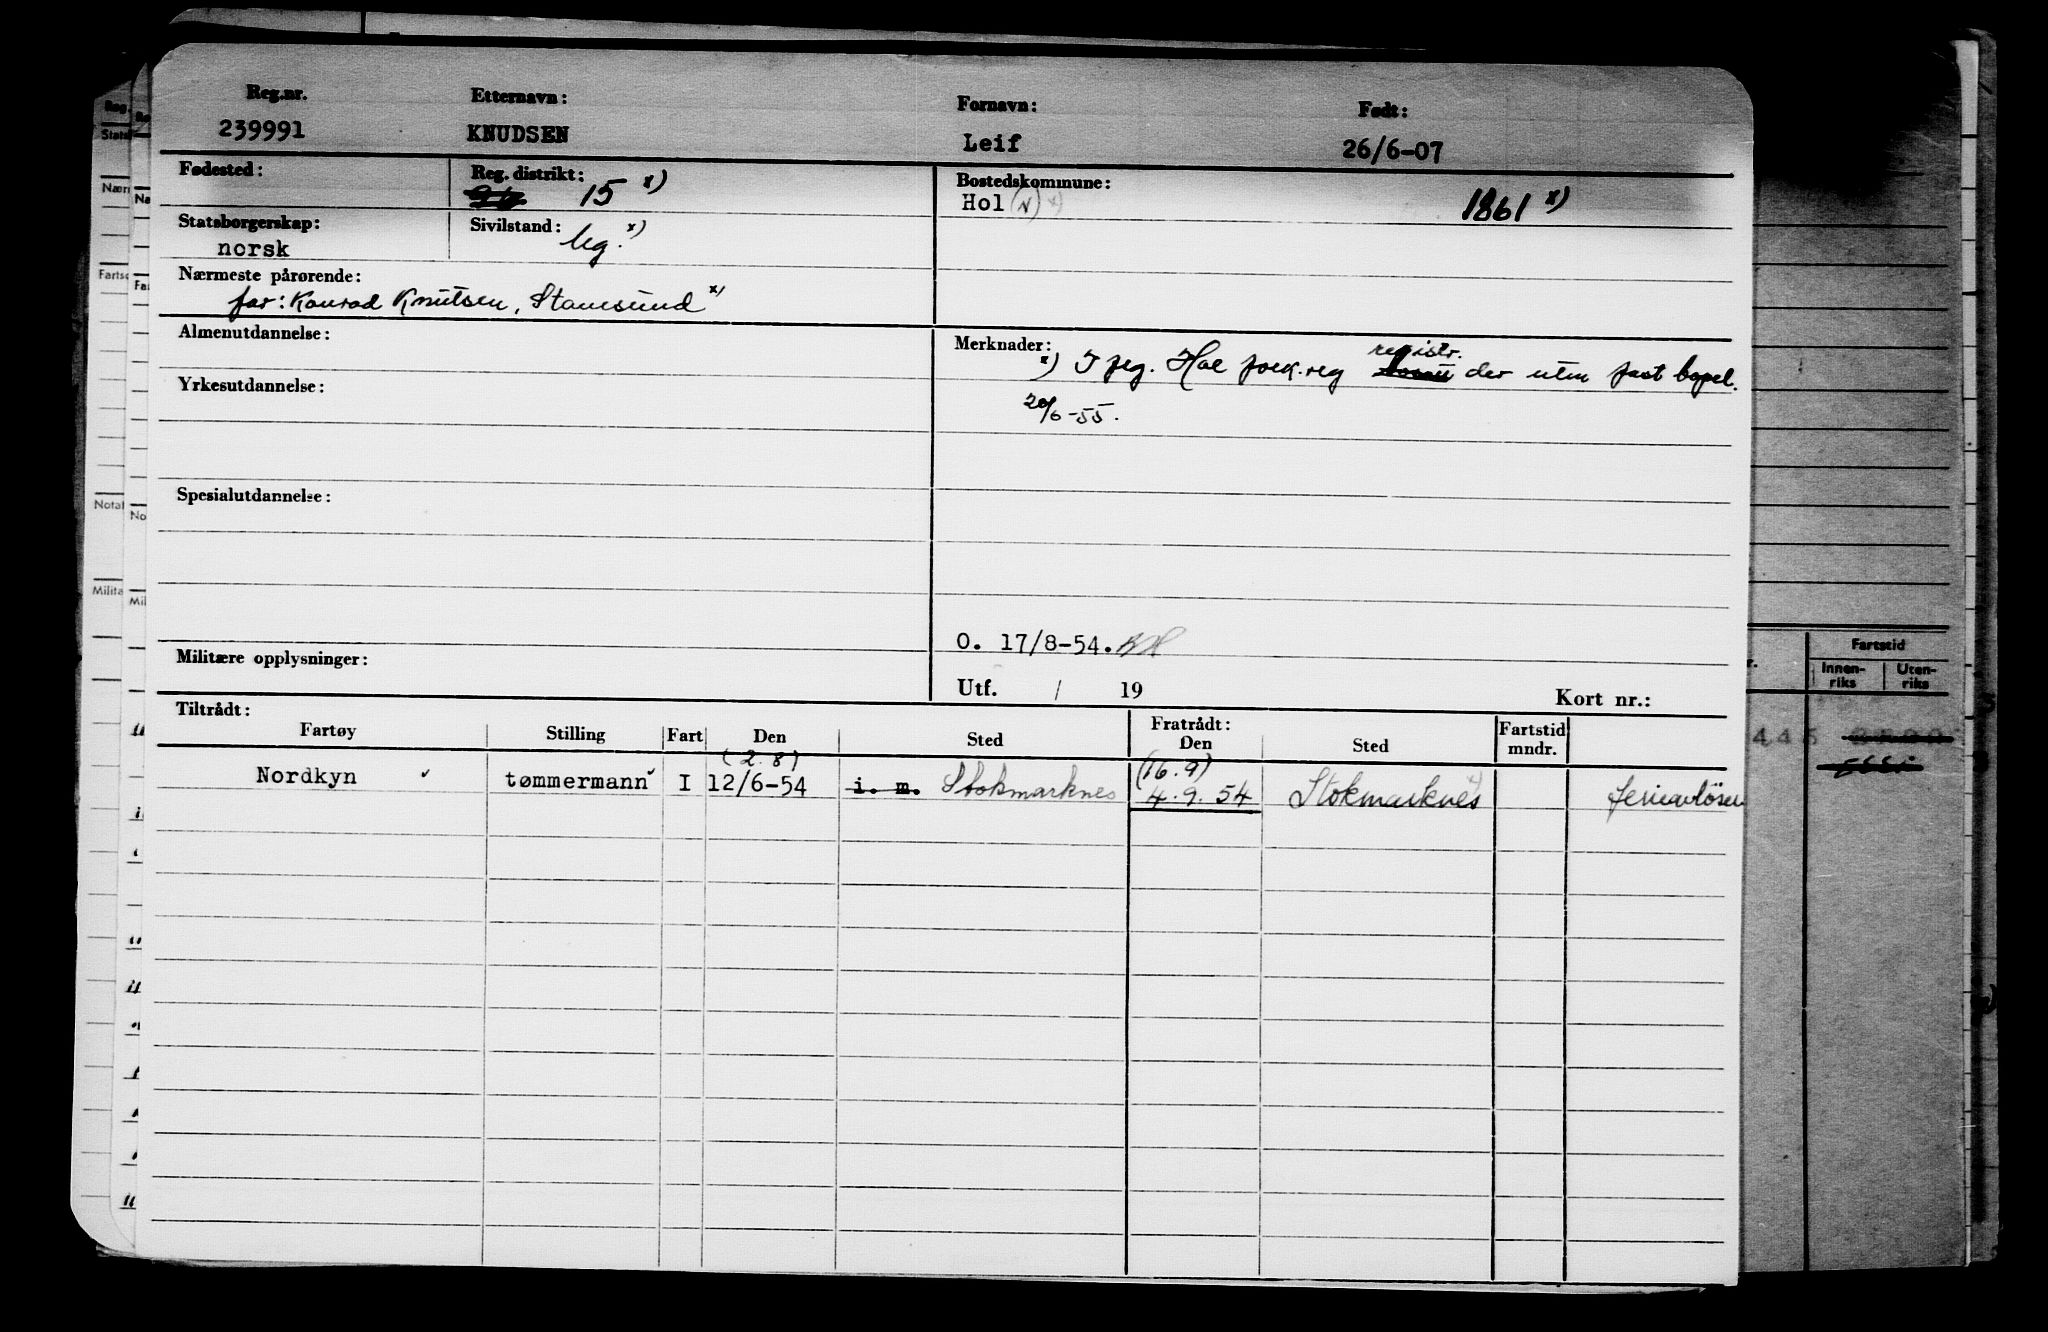 Reg.nr. Etternavn: Fornavn: Født:
239991 KNUDSEN Leif 26/6-07
Fødested: Reg. distrikt: 15 x) Bostedskommune:
Hol (N) x) 1861 x)
Statsborgerskap: Sivilstand: Ug. x)
norsk
Nærmeste pårørende:
far: Konrad Knutsen, Stamsund x)
Almenutdannelse: Merknader:
registr.
x) I flg. Hol folk.reg der uten fast bopel.
20/6-55.
Yrkesutdannelse:
Spesialutdannelse:
O. 17/8-54.
Militære opplysninger:
Utf. / 19 Kort nr.:
Tiltrådt: Fratrådt:
Fartøy Stilling Fart Den Sted Den Sted Fartstid mndr.
(2.8) (16.9)
Nordkyn ✓ tømmermann ✓ I 12/6-54 i. m. Stokmarknes 4.9.54 Stokmarknes ferieavløser
Fartstid
Innen-riks Uten-riks